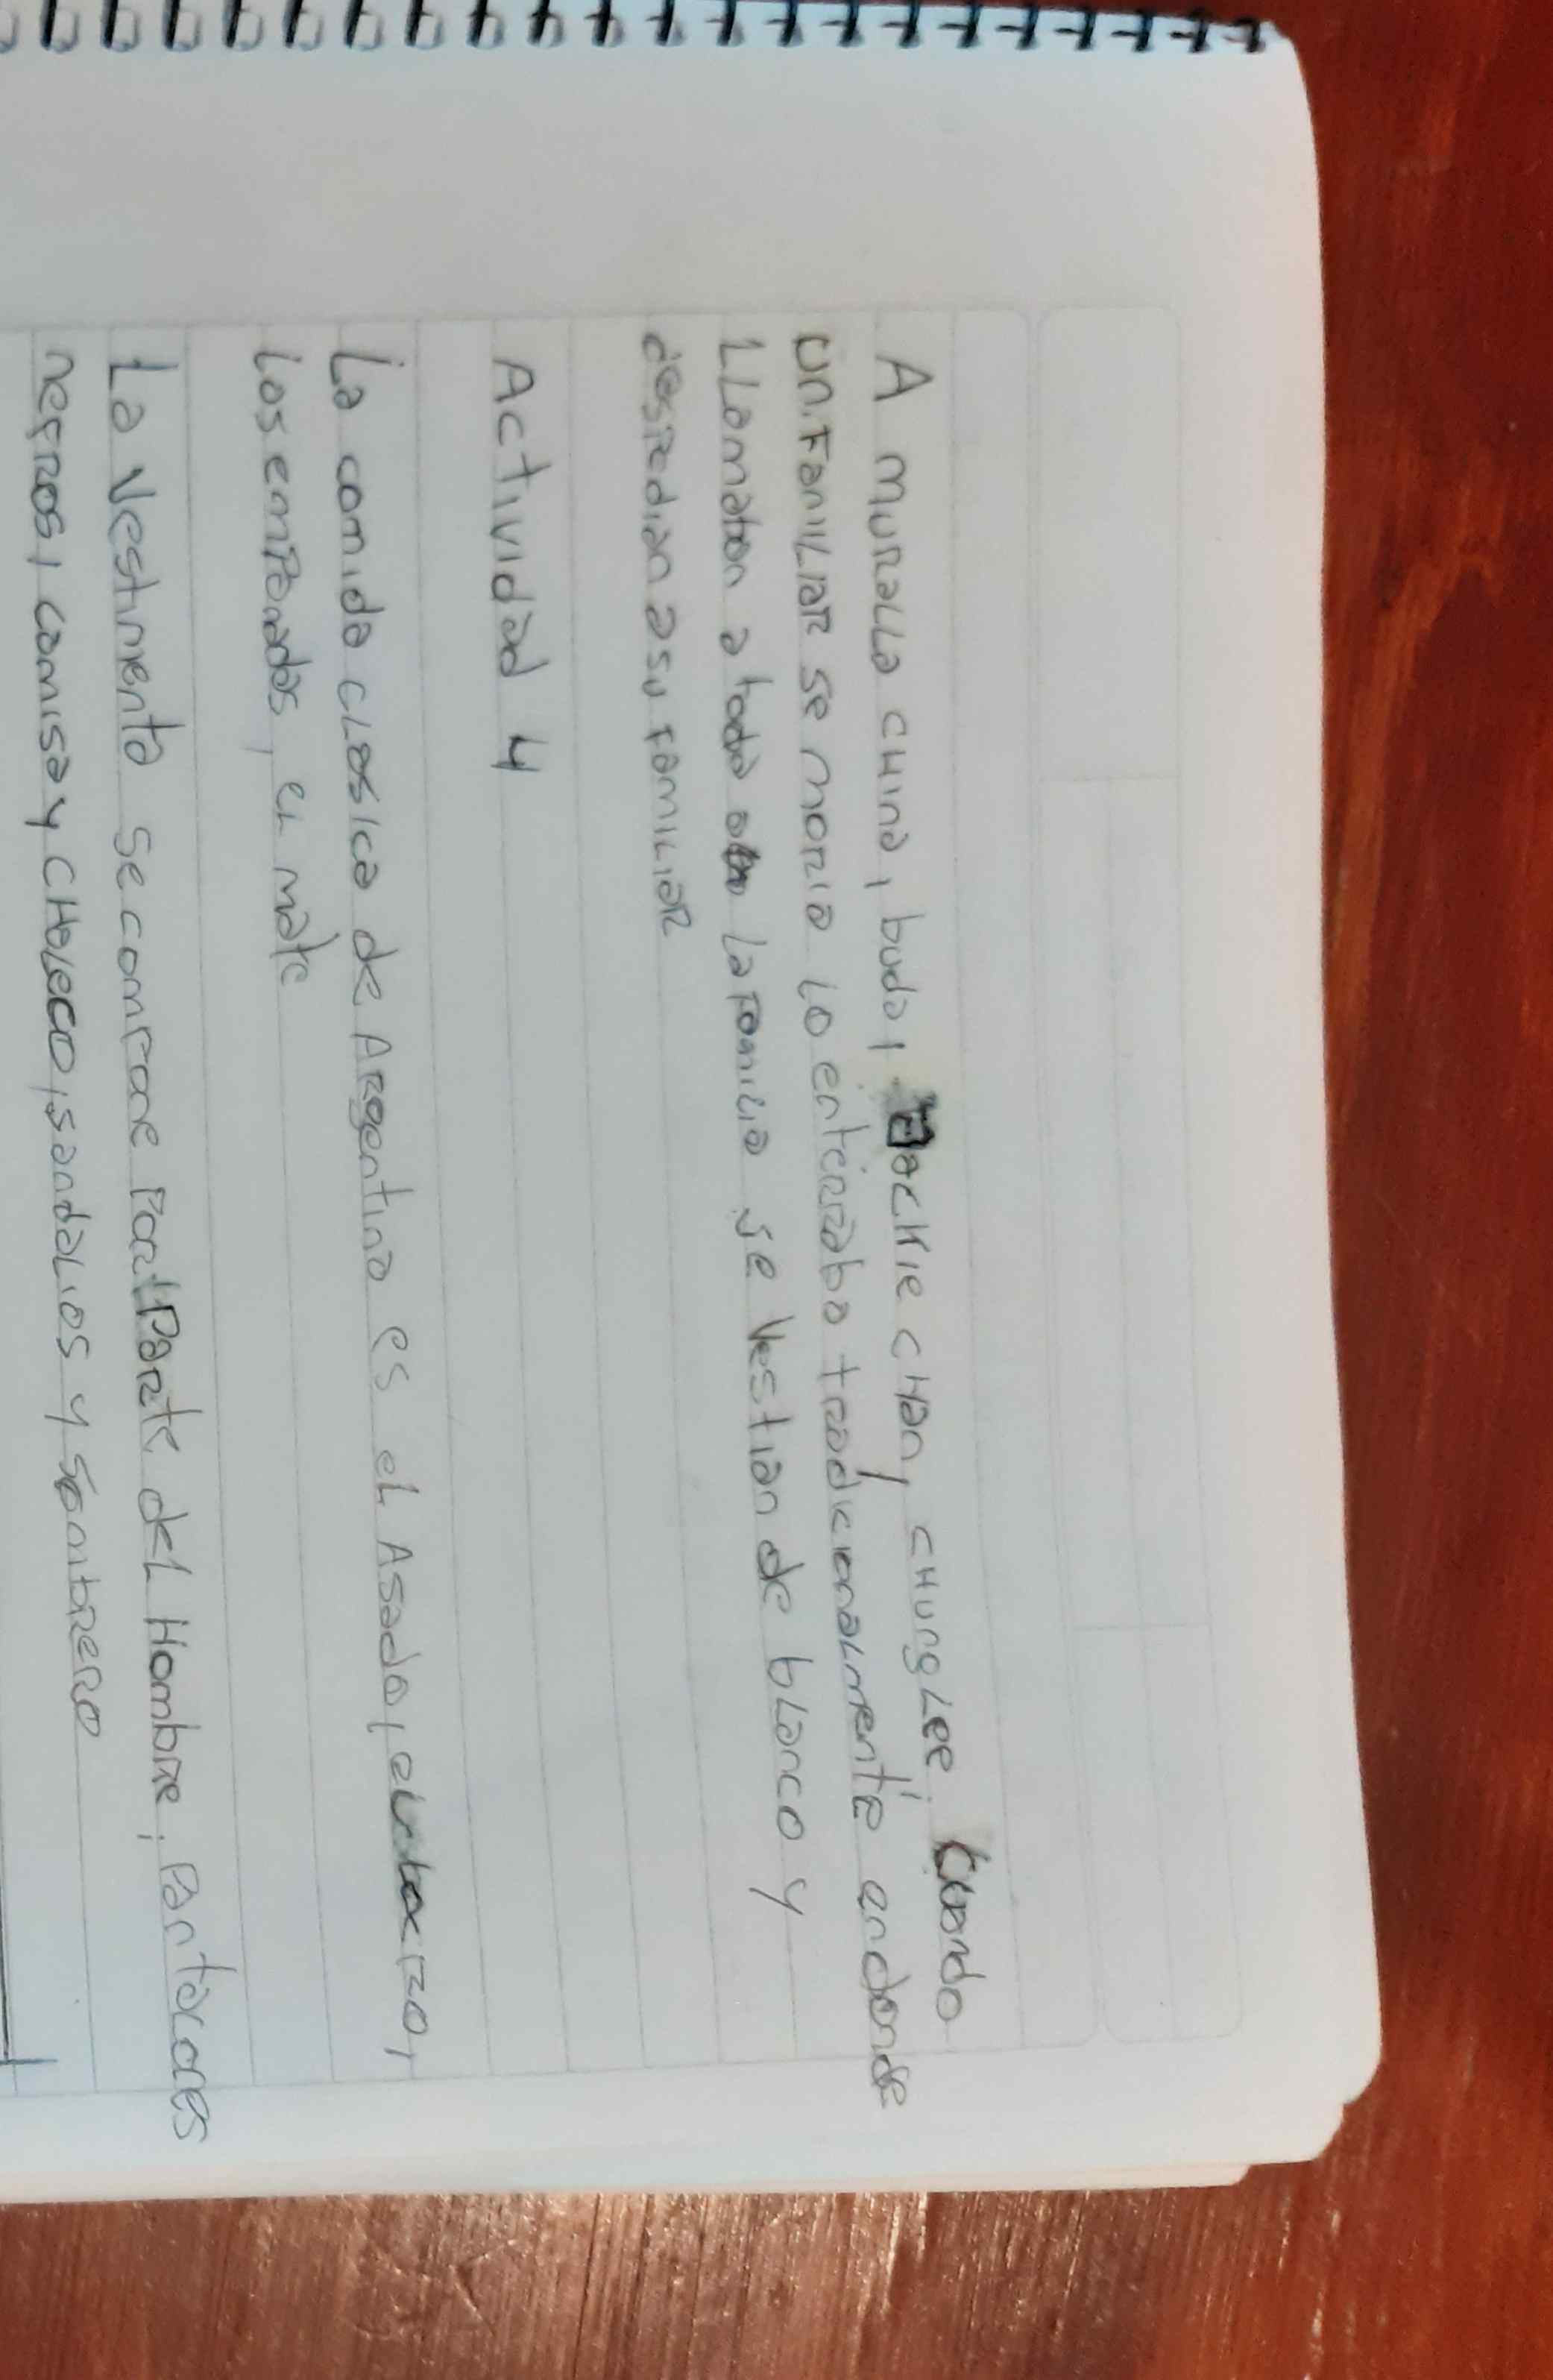 A muralla china, buda, Jackie chan, chung Lee. Cuando
un familiar se moria lo enterraba tradicionalmente endonde
LLamaban a toda la familia se vestian de blanco y
despedian a su familiar
Actividad 4
La comida clasica de Argentina es el Asado, el locro,
Las empanadas, el mate
La vestimenta se compone por parte del Hombre, pantalones
negros, camisa y chaleco, sandalias y sombrero